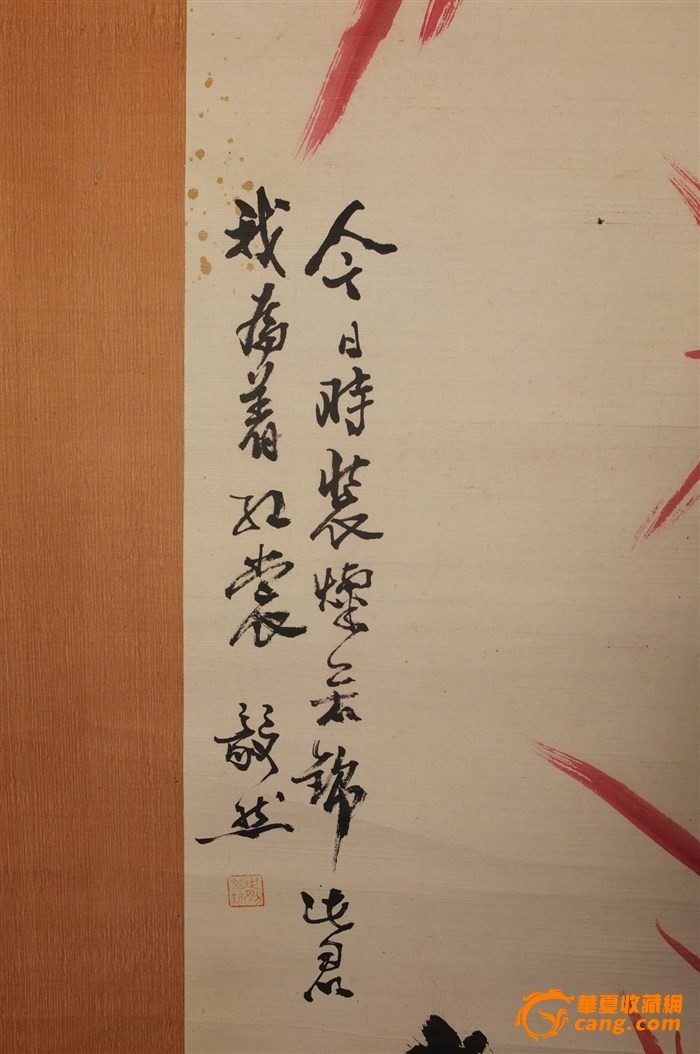 今日時裝燦若錦 此君
我為着紅裳 毅然
華夏收藏網
cang.com